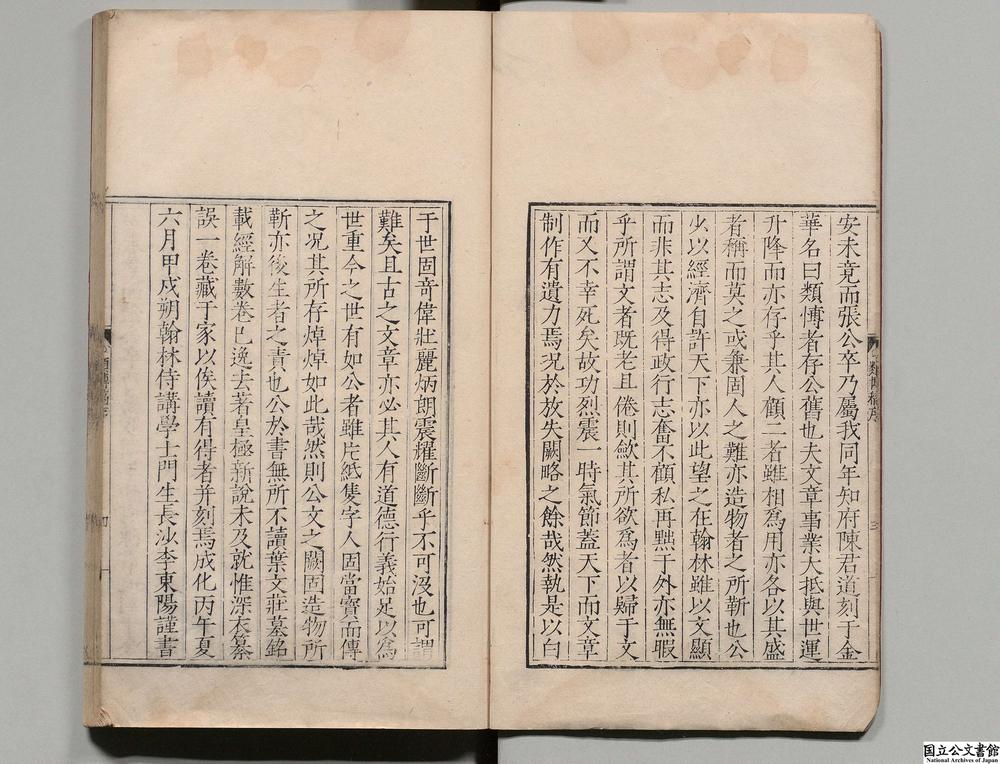 安未竟而張公卒乃屬我同年知府陳君道刻于金
華名曰類博者存公舊也夫文章事業大抵與世運
升降而亦存乎其人顧二者雖相為用亦各以其盛
者稱而莫之或兼固人之難亦造物者之所靳也公
少以經濟自許天下亦以此望之在翰林雖以文顯
而非其志及得政行志奮不顧私再黜于外亦無暇
乎所謂文者既老且倦則歛其所欲爲者以歸于文
而又不幸死矣故功烈震一時氣節蓋天下而文章
制作有遺力焉况於放失闕略之餘哉然執是以白
類博稿序
三
于世固竒偉壯麗炳朗震耀斷斷乎不可沒也可謂
難矣且古之文章亦必其人有道德行義始足以爲
世重今之世有如公者雖片紙隻字人固當寳而傳
之况其所存焯焯如此哉然則公文之闕固造物所
靳亦後生者之責也公於書無所不讀葉文莊墓銘
載經解數卷已逸去著皇極新説未及就惟深衣纂
誤一卷藏于家以俟讀有得者并刻焉成化丙午夏
六月甲戍朔翰林侍講學士門生長沙李東陽謹書
類博稿序
四
国立公文書館
National Archives of Japan